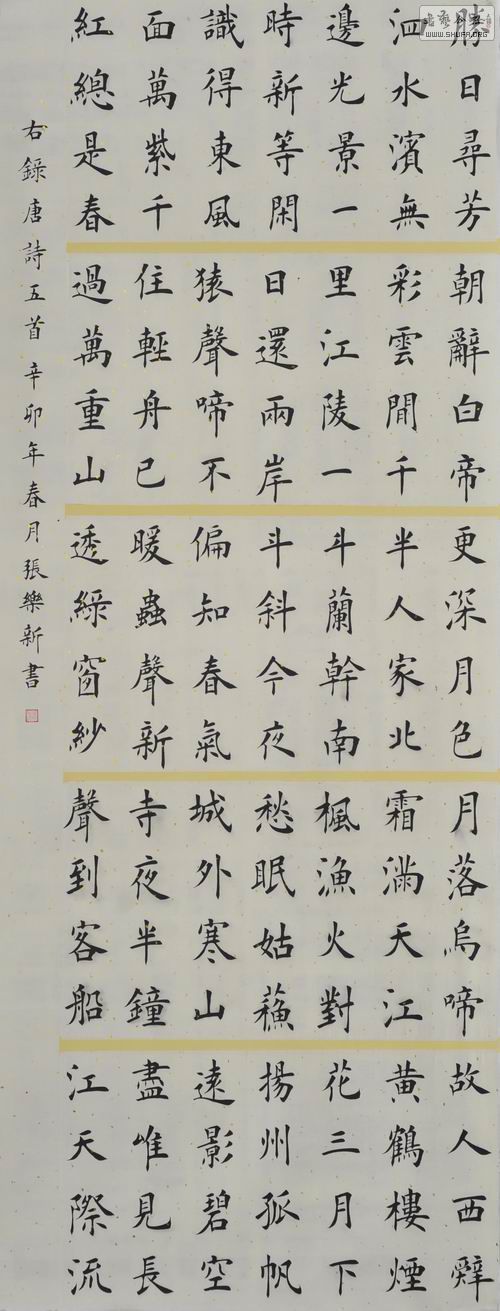 勝日尋芳
泗水濱無
邊光景一
時新等閑
識得東風
面萬紫千
紅總是春
朝辭白帝
彩雲間千
里江陵一
日還兩岸
猿聲啼不
住輕舟已
過萬重山
更深月色
半人家北
斗蘭幹南
斗斜今夜
偏知春氣
暖蟲聲新
透綠窗紗
月落烏啼
霜滿天江
楓漁火對
愁眠姑蘓
城外寒山
寺夜半鐘
聲到客船
故人西辭
黃鶴樓煙
花三月下
揚州孤帆
遠影碧空
盡唯見長
江天際流
右錄唐詩五首辛卯年春月張樂新書
WWW.SHUFA.ORG